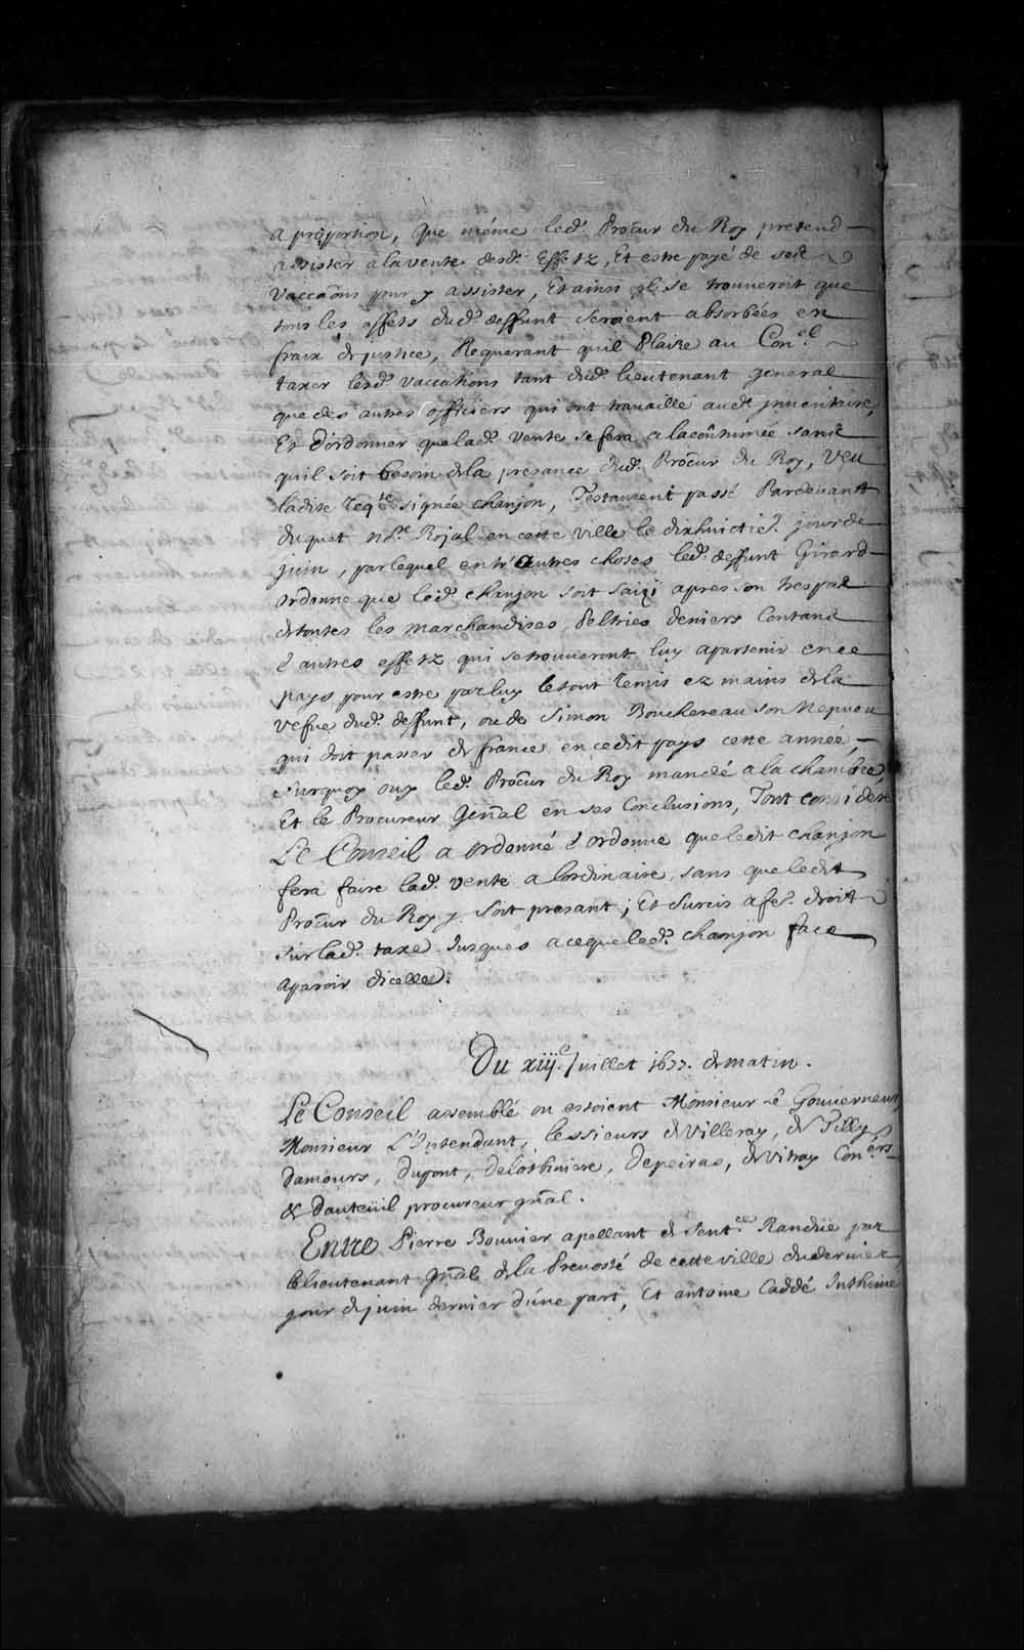 a proportion, Que méme led. Procur du Roy pretend
assister a la vente desd. Effetz, Et estre payé de ses
vaccaons pour y assister, Et ainsi il se trouveroit que
tous les effets dud. deffunt seroient absorbées en
fraix de justice, Requerant quil Plaise au Con.el
taxer lesd. vaccations tant dud. lieutenant general
que des autres officiers qui ont travaillé aud. inventaire,
Et d'ordonner que lad. vente se fera a lacoûtumée sans
quil soit besoin dela presance dud. Procur du Roy, Veu
ladite Req.te signée chanjon, Testament passé Pardevant
duquet no.re Rojal en cette ville le dixhuictie. jour de
juin, par lequel entr'autres choses led. deffunt Girard
ordonne que led. chanjon soit saizi apres son trespas
de toutes les marchandises, Peltries deniers Contans
& autres effetz qui se trouveront luy apartenir en ce
pays pour estre par luy le tout remis ez mains dela
vefve dud. deffunt, ou de Simon Bouchereau son Nepveu
qui doit passer de france en cedit pays cette année,
surquoy ouy led. Procur du Roy mandé a la chambre,
Et le Procureur Gen̄al en ses Conclusions, Tout consideré
Le Conseil a ordonné & ordonne que ledit chanjon
fera faire lad. vente a lordinaire, sans que ledit
Procur du Roy y soit presant; Et surcis a fe. droit
sur lad. taxe jusques a ceque led. chanjon face
aparoir dicelle.
Du xiij.e Juillet 1677. de matin.
Le Conseil assemblé ou estoient Monsieur Le Gouverneur
Monsieur L'Intendant, les sieurs de Villeray, de Tilly,
damours, dupont, delotbiniere, depeiras, de Vitray Con.ers
& dauteüil procureur gn̄al.
Entre Pierre Bouvier apellant de sent.ce Randüe par
le lieutenant gn̄al dela Prevosté de cette ville du dernier
jour de juin dernier d'une part, Et antoine Caddé Inthimé